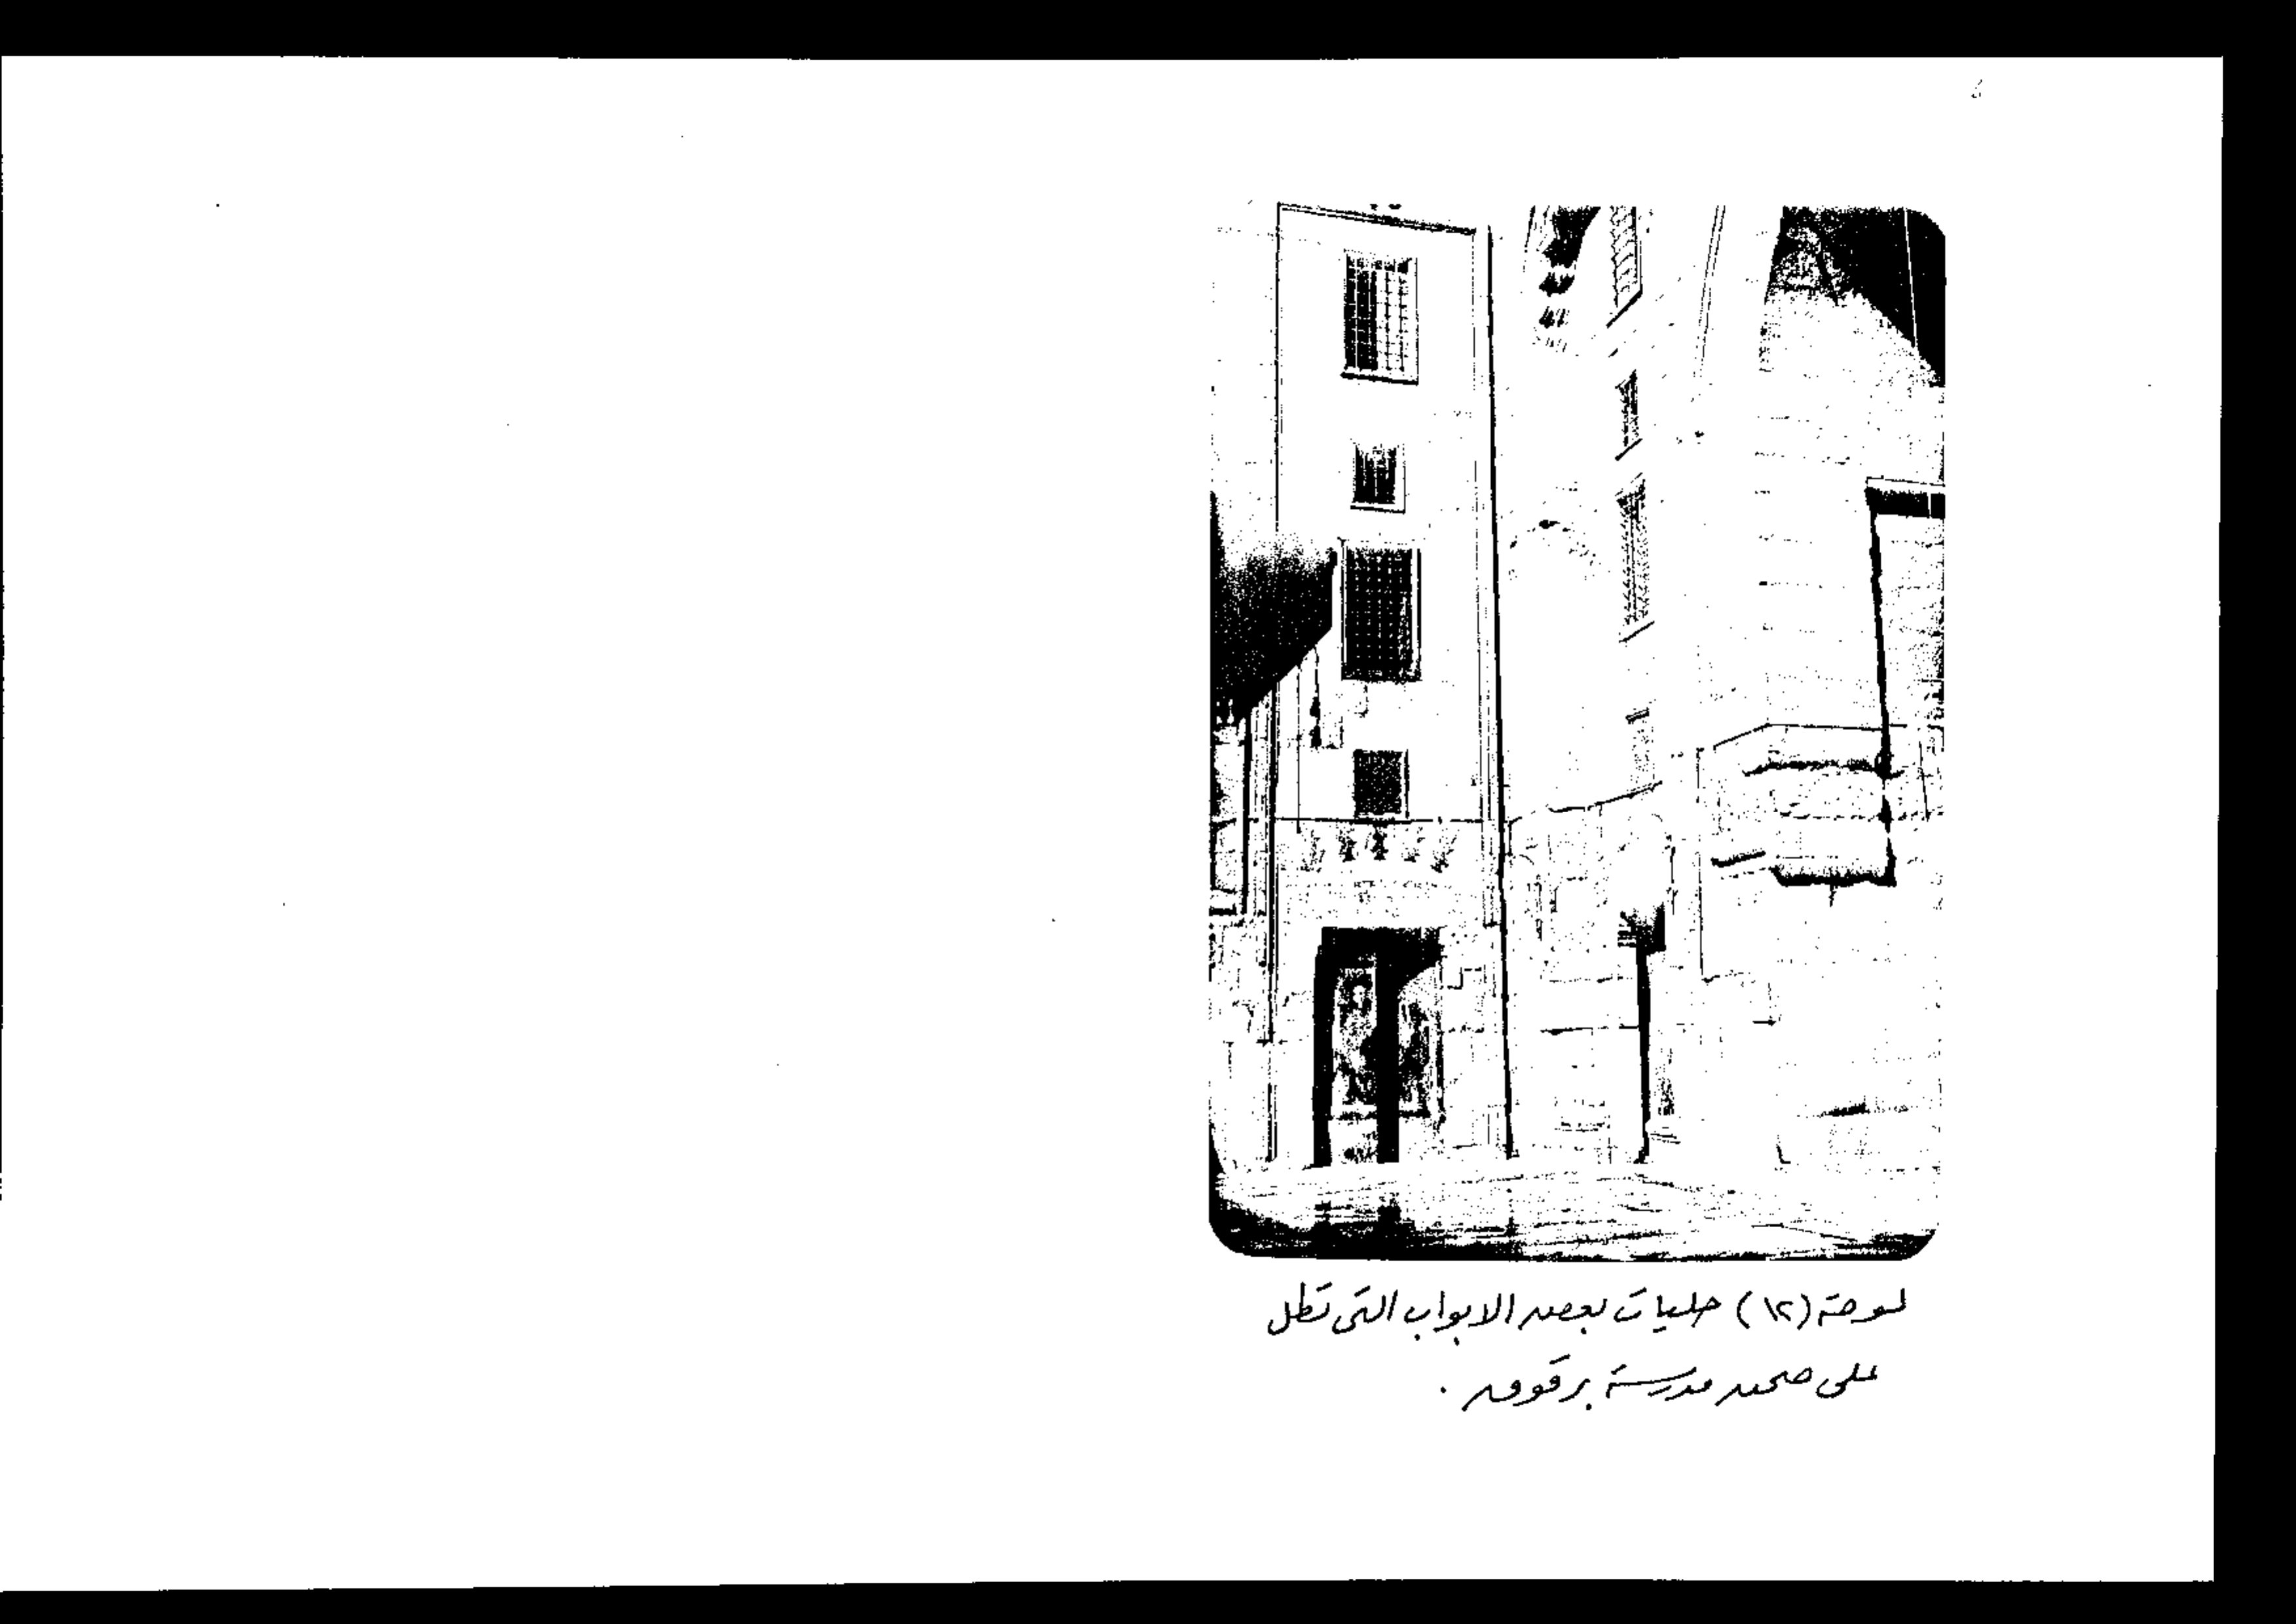 لوحة (١٢) حليات بعض الابواب التى تطل
على صحن مدرسة برقوق .